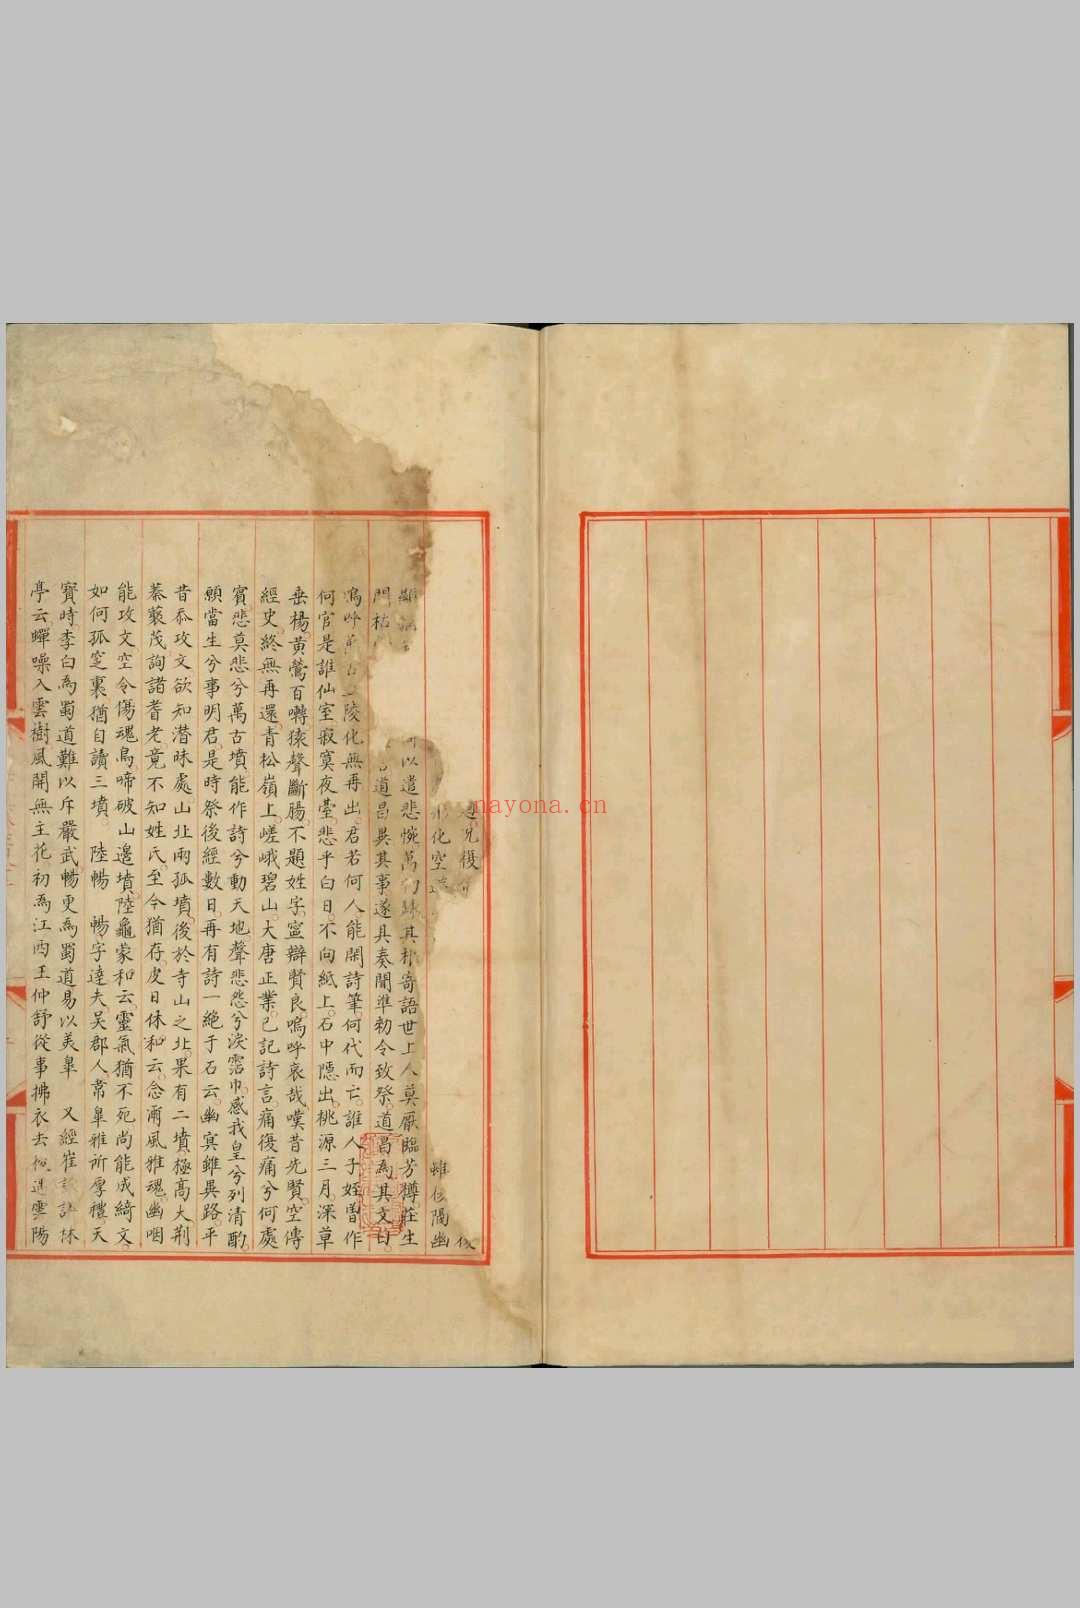 化空
雖
幽
以遣悲惋萬
其
寄語世上人莫厭臨芳樽莊生
門枯
道昌異其事遂具奏聞準勑令致祭道昌為其文曰
嗚呼
陵化無再出君若何人能閑詩筆何代而亡誰人子姪曽作
何官是誰仙室寂寞夜臺悲乎白日不向紙上石中隱出桃源三月深草
垂楊黄鶯百囀猿聲斷腸不題姓字寧辯賢良嗚呼哀哉嘆昔先賢空傳
經史終無再還青松嶺上嵯峨碧山大唐正業已記詩言痛復痛兮何處
賓悲莫悲兮萬古墳能作詩兮動天地聲悲怨兮淚霑巾感我皇兮列清酌
願當生兮事明君是時祭後經數日再有詩一絶于石云幽㝠雖異路平
昔忝攻文欲知潛昧處山北兩孤墳後於寺山之北果有二墳極高大荆
蓁藂茂詢諸耆老竟不知姓氏至今猶存皮日休和云念爾風雅魂幽咽
能攻文空令傷魂鳥啼破山邊墳陸龜蒙和云靈氣猶不死尚能成綺文
如何孤窆裏猶自讀三墳 陸暢 暢字達夫吴郡人常臯雅所厚禮天
寳時李白為蜀道難以斥嚴武暢更為蜀道易以美臯 又經崔
林
亭云蟬噪入雲樹風開無主花初為江西王仲舒從事拂衣去
雲陽
nayona.cn